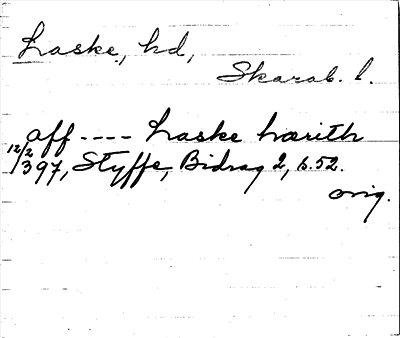 Laske, hd,
Skarab. l.
aff ---- Laske hærith
12/2 1397, Styffe, Bidrag 2, s. 52.
orig.